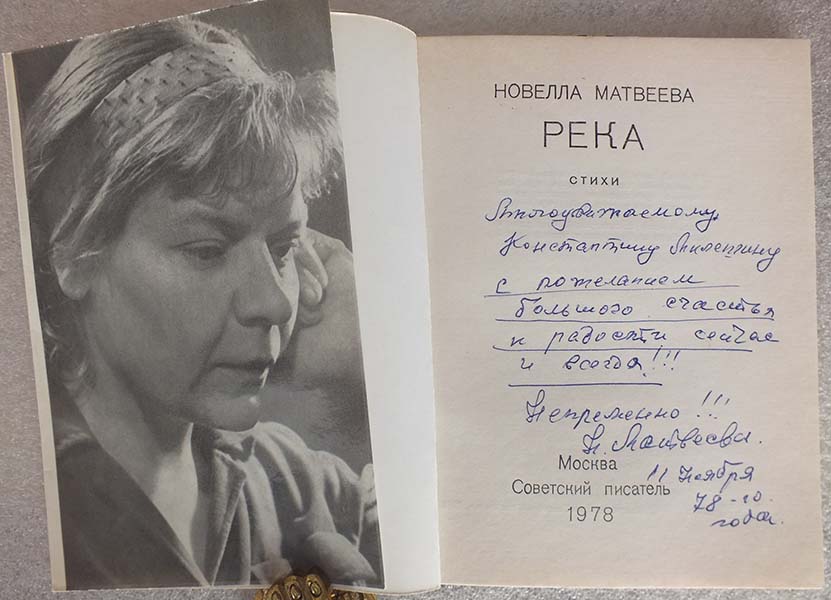 НОВЕЛЛА МАТВЕЕВА
РЕКА
СТИХИ
Многоуважаемому
Константину
с пожеланием
большого счастья
и радости сейчас
и всегда!!!
Непременно!!!
Н. Матвеева.
Москва
11 ноября
Советский писатель
78-го
1978
года.